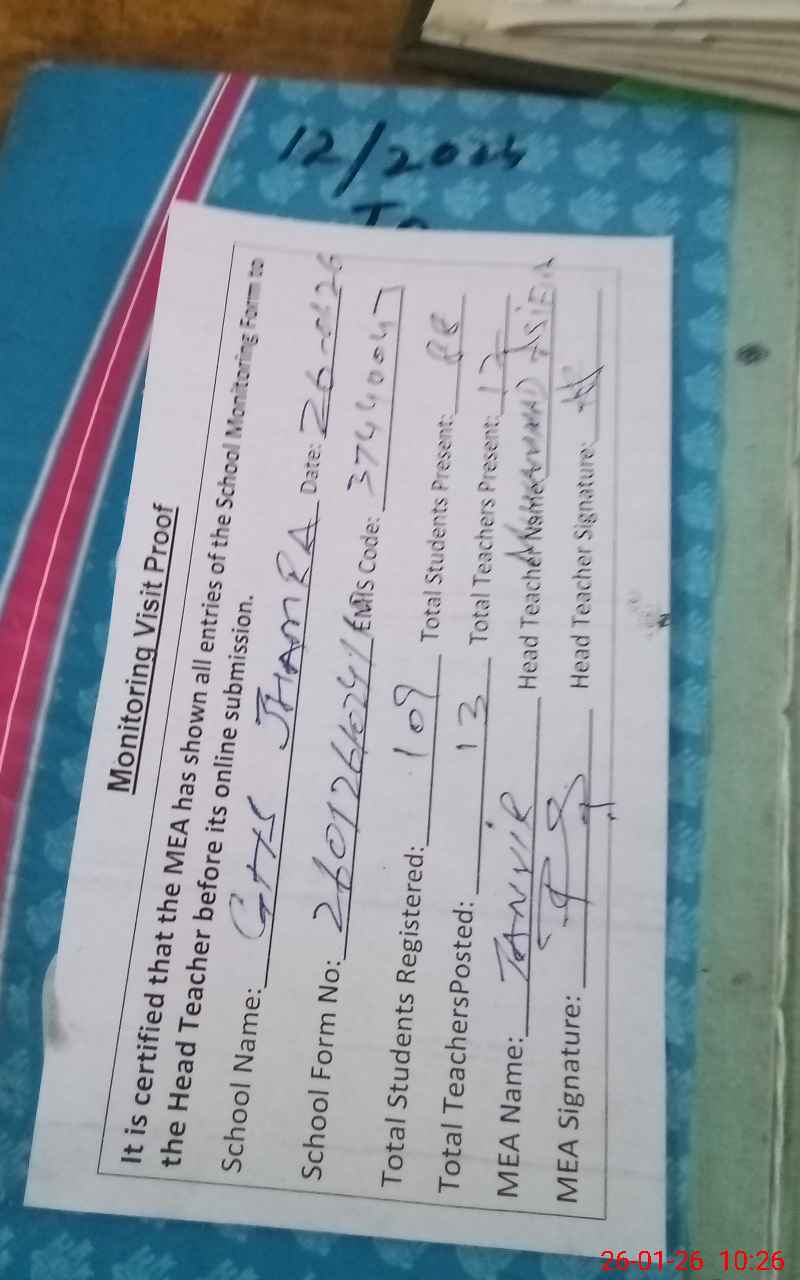 12/2024
To
Monitoring Visit Proof
It is certified that the MEA has shown all entries of the School Monitoring Form to
the Head Teacher before its online submission.
School Name: GHS JHAMRA Date: 26-0126
School Form No: EMIS Code: 37440047
Total Students Registered: 109 Total Students Present: 88
Total TeachersPosted: 13 Total Teachers Present: 12
MEA Name: TANVIR Head Teacher Name: ASIF
MEA Signature: Head Teacher Signature:
26-01-26 10:26